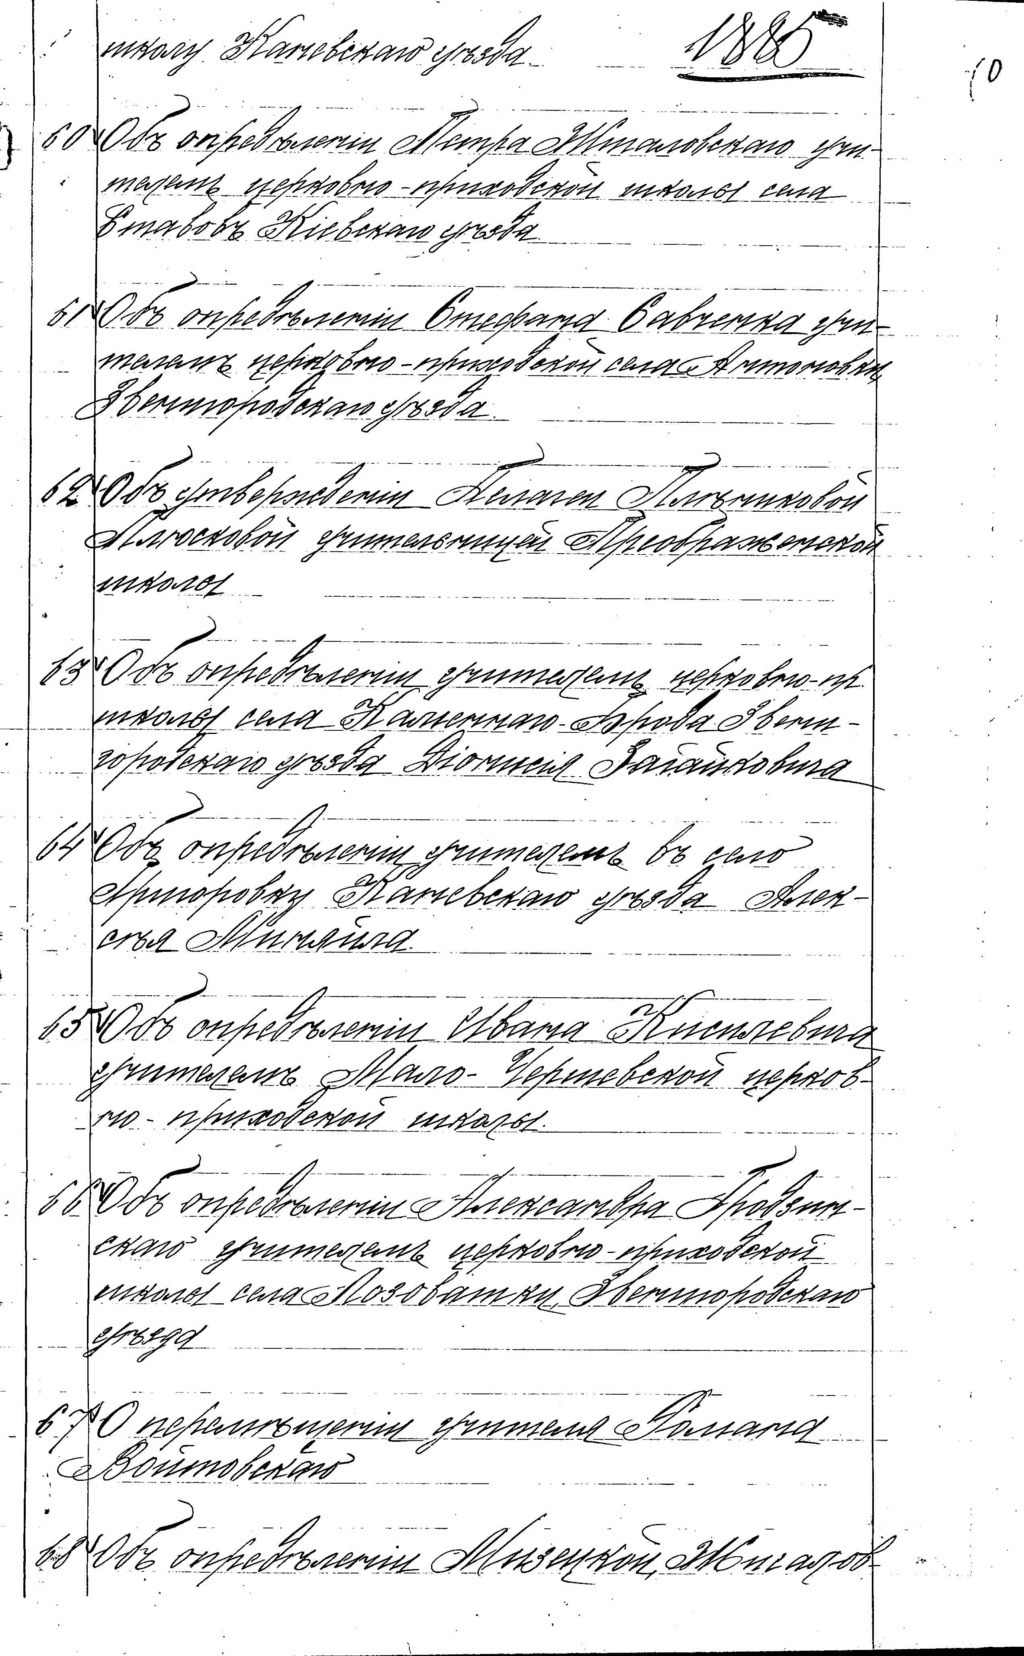 школу Каневскаго уѣзда
1885
10
60 Объ опредѣленіи Петра Жталовскаго учи-
телемъ церковно-приходской школы села
Ставовъ Кіевскаго уѣзда
61 Объ опредѣленіи Стефана Савченка учи-
телемъ церковно-приходской села Антоновки
Звенигородскаго уѣзда
62 Объ утвержденіи Пелагеи Плѣчниковой
Плюсковой учительницей Преображенской
школы
63 Объ опредѣленіи учителемъ церковно-пр
школы села Каменнаго-Брода Звени-
городскаго уѣзда Діонисія Загайковича
64 Объ опредѣленіи учителемъ въ село
Григоровку Каневскаго уѣзда Алек-
сѣя Миняйла
65 Объ опредѣленіи Ивана Кисилевича
учителемъ Мало-Черневской церков-
но-приходской школы.
66 Объ опредѣленіи Александра Гродзин-
скаго учителемъ церковно-приходской
школы села Лозоватки, Звенигородскаго
уѣзда
67 О перемѣщеніи учителя Романа
Войтовскаго
68 Объ опредѣленіи Мизецкой, Жигалов-